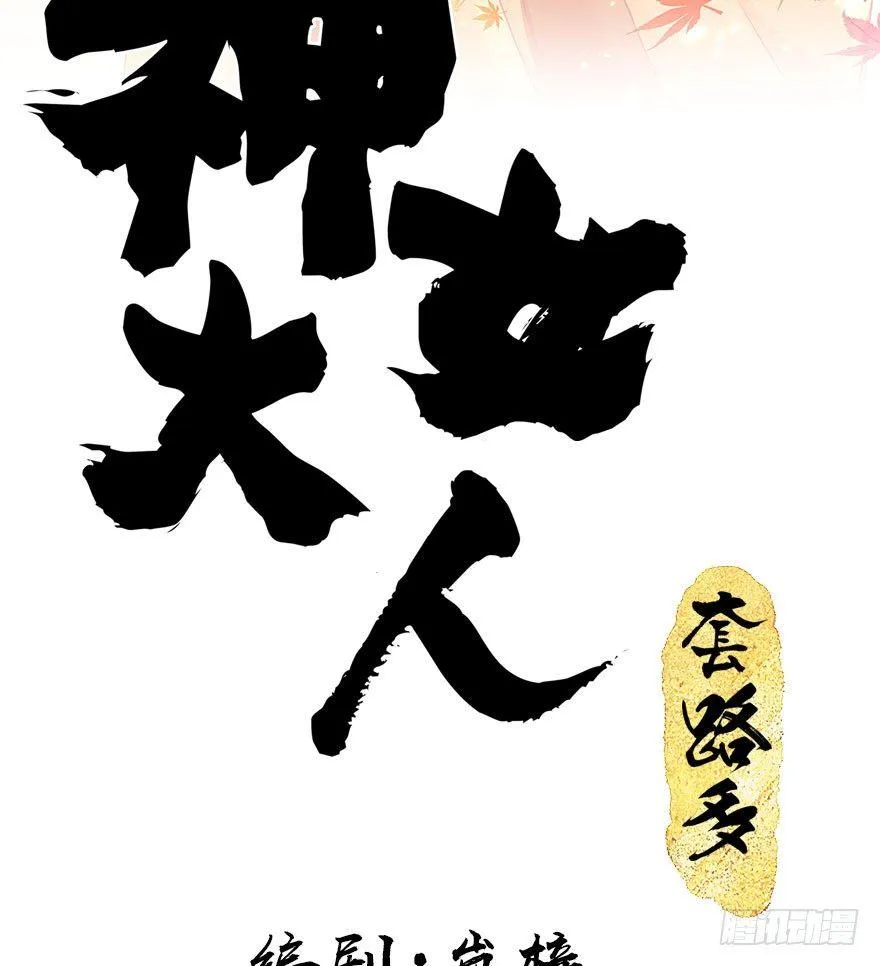 神女
大人
套路多
编剧·岚樳
腾讯动漫